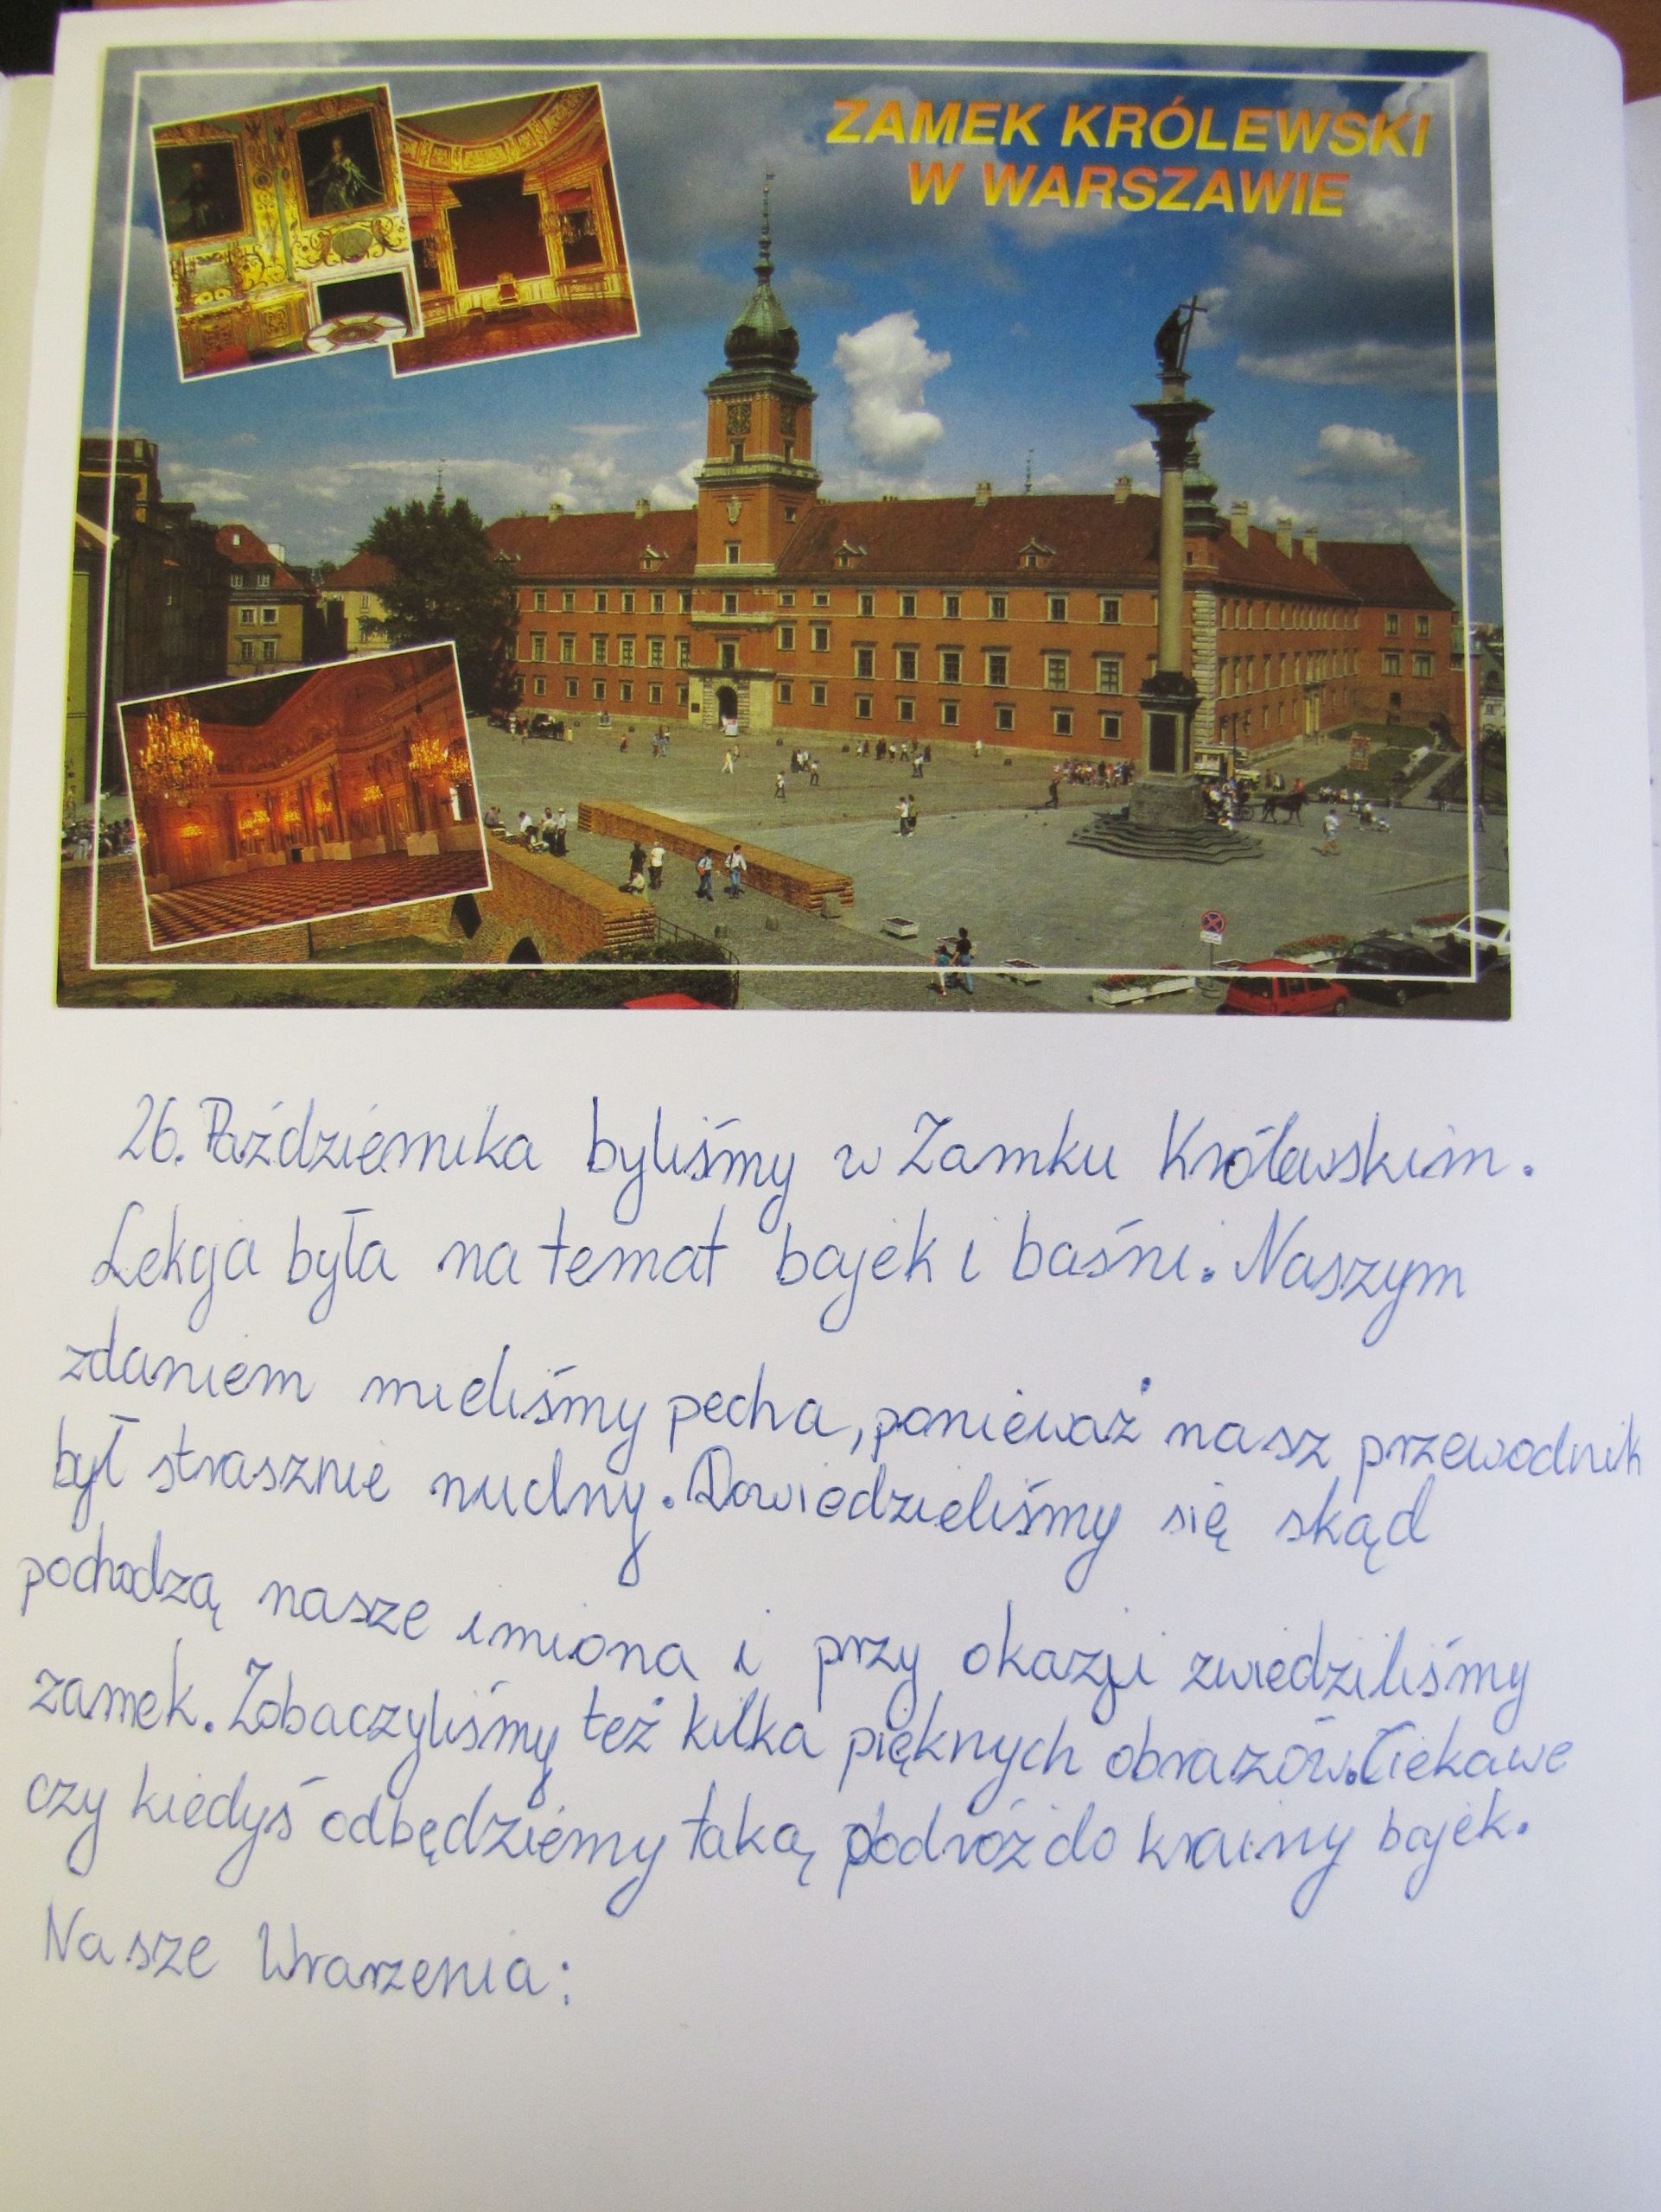 ZAMEK KRÓLEWSKI
W WARSZAWIE
26. Października byliśmy w Zamku Królewskim.
Lekcja była na temat bajek i baśni. Naszym
zdaniem mieliśmy pecha, ponieważ nasz przewodnik
był strasznie nudny. Dowiedzieliśmy się skąd
pochodzą nasze imiona i przy okazji zwiedziliśmy
zamek. Zobaczyliśmy też kilka pięknych obrazów. Ciekawe
czy kiedyś odbędziemy taką podróż do krainy bajek.
Nasze Wrarzenia: